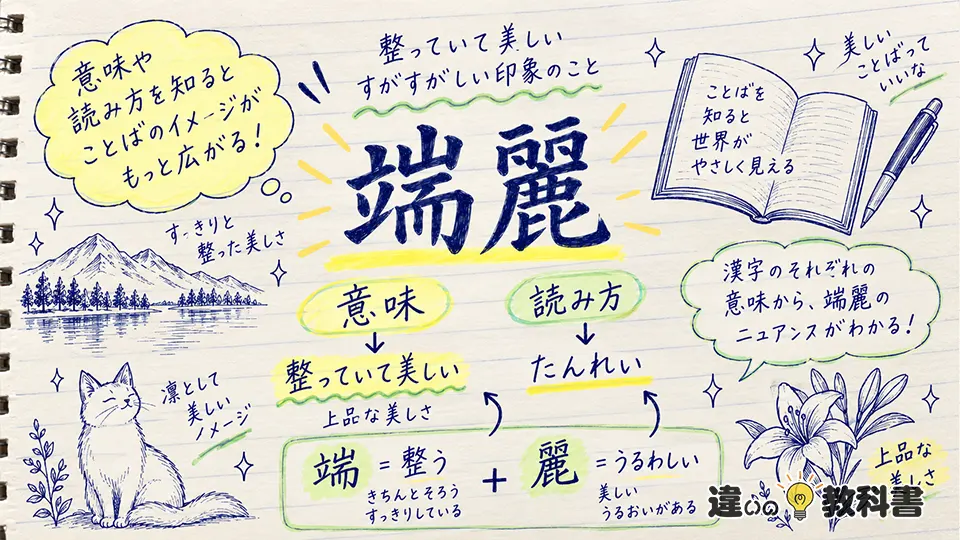 意味や
読み方を知ると
ことばのイメージが
もっと広がる!
整っていて美しい
すがすがしい印象のこと
端麗
ことばを
知ると
世界が
やさしく見える
美しい
ことばって
いいな
すっきりと
整った美しさ
意味
整っていて美しい
上品な美しさ
読み方
たんれい
漢字のそれぞれの
意味から、端麗の
ニュアンスがわかる!
凛として
美しい
イメージ
端 = 整う
きちんとそろう
すっきりしている
+
麗 = うるわしい
美しい
うるおいがある
上品な
美しさ
違いの教科書